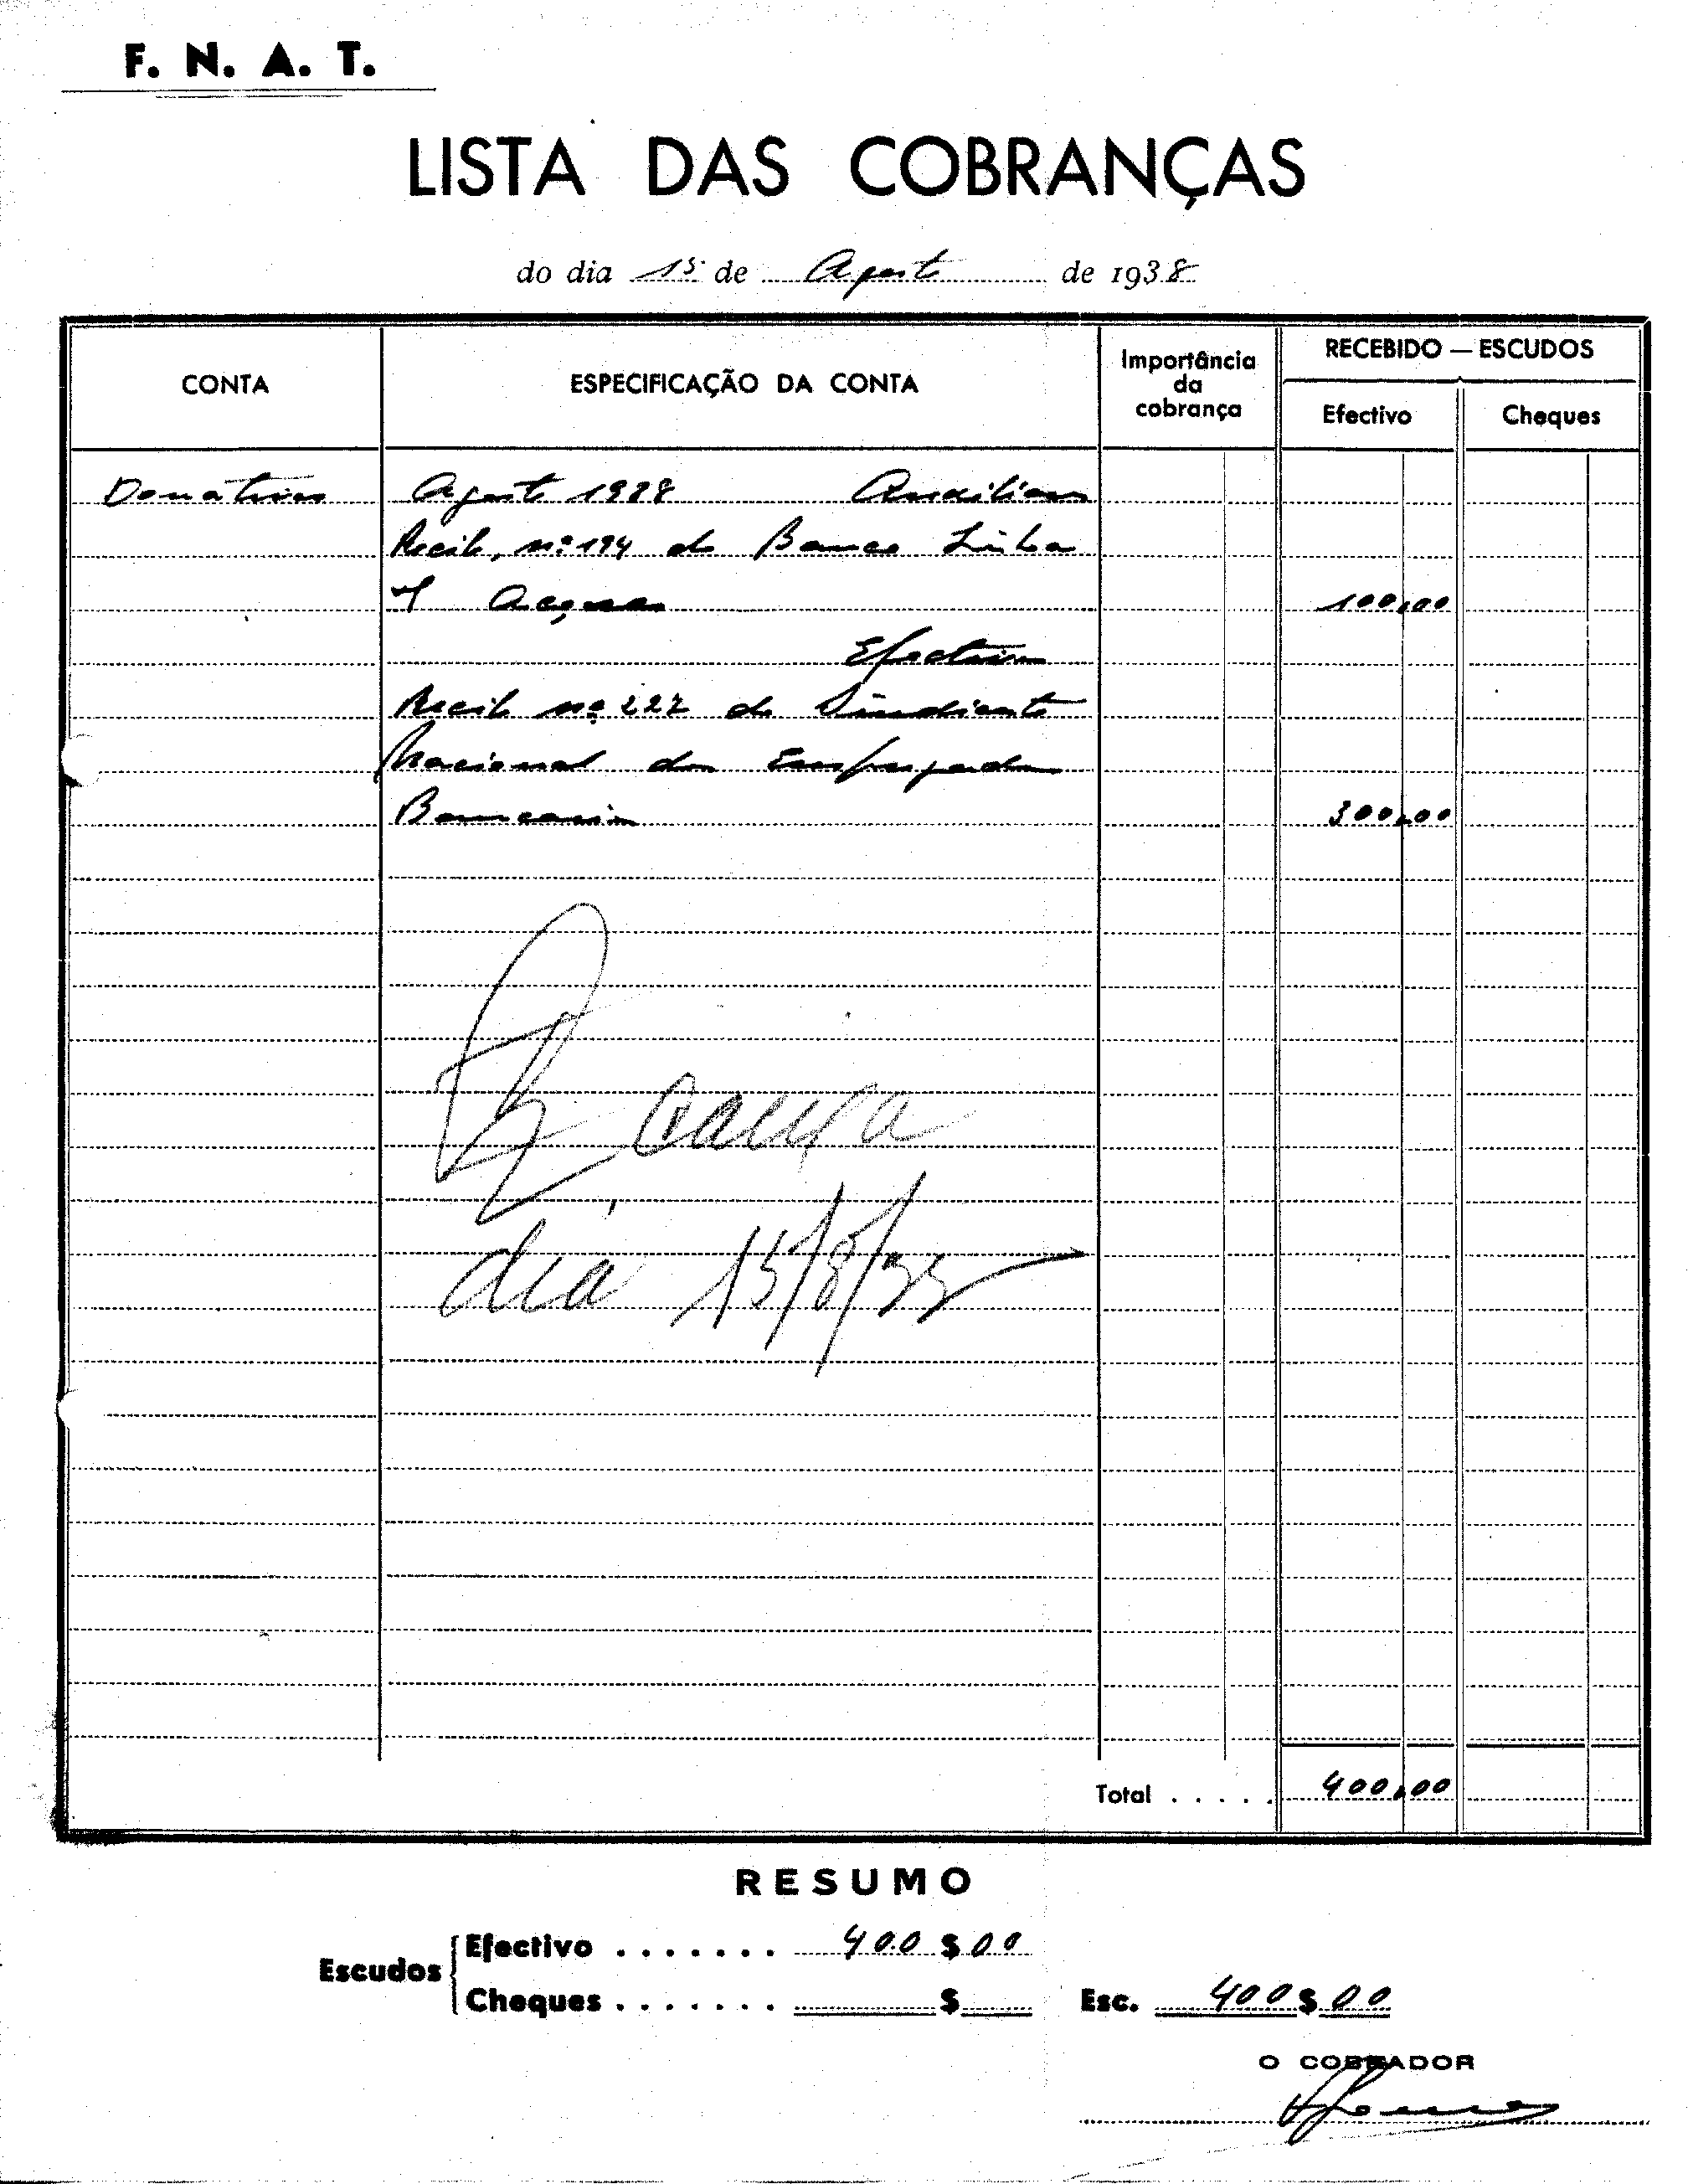 F. N. A. T.
LISTA DAS COBRANÇAS
do dia 15 de Agosto de 1938
CONTA
ESPECIFICAÇÃO DA CONTA
Importância
da
cobrança
RECEBIDO — ESCUDOS
Efectivo
Cheques
Donativos Agosto 1938 Auxiliares
Recibo nº 194 do Banco Lisboa
& Açores 100,00
Efectivos
Recibo nº 227 do Sindicato
Nacional dos Empregados
Bancarios 300,00
Caixa
dia 15/8/38
Total . . . . . 400,00
RESUMO
Escudos
Efectivo . . . . . . . 400$00
Cheques . . . . . . . $
Esc. 400$00
O COBRADOR